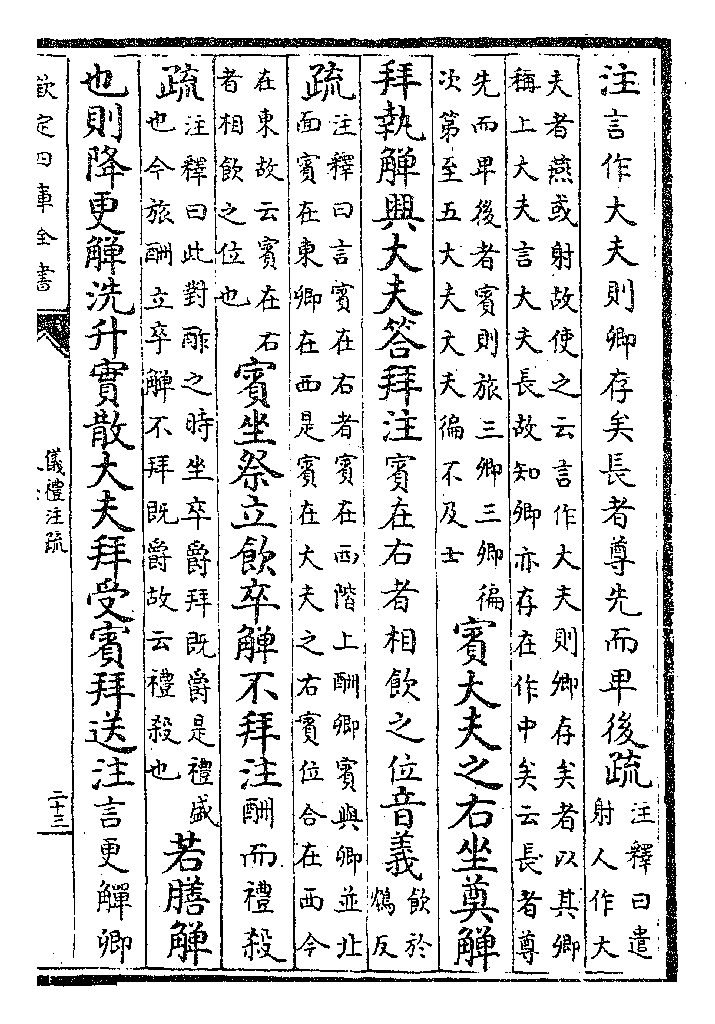 注言作大夫則卿存矣長者尊先而卑後疏
注釋曰遣
射人作大
夫者燕或射故使之云言作大夫則卿存矣者以其卿
稱上大夫言大夫長故知卿亦存在作中矣云長者尊
先而卑後者賓則旅三卿三卿徧
次第至五大夫大夫徧不及士
賓大夫之右坐奠觶
拜執觶興大夫答拜注賓在右者相飲之位音義
飲於
鴆反
疏
注釋曰言賓在右者賓在西階上酬卿賓與卿並北
面賓在東卿在西是賓在大夫之右賓位合在西今
在東故云賓在右
者相飲之位也
賓坐祭立飲卒觶不拜注酬而禮殺
疏
注釋曰此對酢之時坐卒爵拜既爵是禮盛
也今旅酬立卒觶不拜既爵故云禮殺也
若膳觶
也則降更觶洗升實散大夫拜受賓拜送注言更觶卿
欽定四庫全書
儀禮注疏
二十三